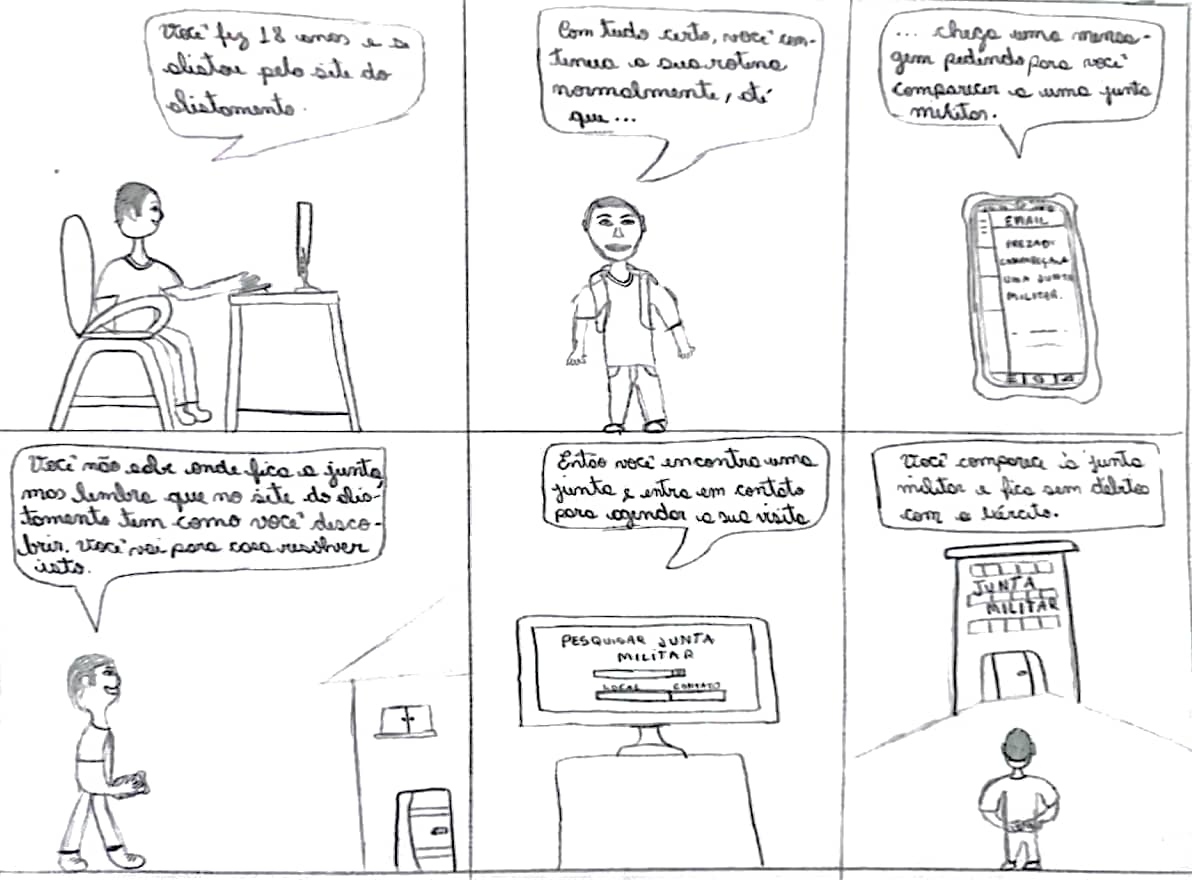 Você fez 18 anos e se
alistou pelo site do
alistamento.
Com tudo certo, você con-
tinua a sua rotina
normalmente, até
que...
... chega uma mensa-
gem pedindo para você
comparecer a uma junta
militar.
EMAIL
PREZADO
COMPAREÇA A
UMA JUNTA
MILITAR.
Você não sabe onde fica a junta,
mas lembra que no site do alis-
tamento tem como você desco-
brir. Você vai para casa resolver
isto.
Então você encontra uma
junta e entra em contato
para agendar a sua visita
PESQUISAR JUNTA
MILITAR
LOCAL CONTATO
Você comparece à junta
militar e fica sem débitos
com o Exército.
JUNTA
MILITAR